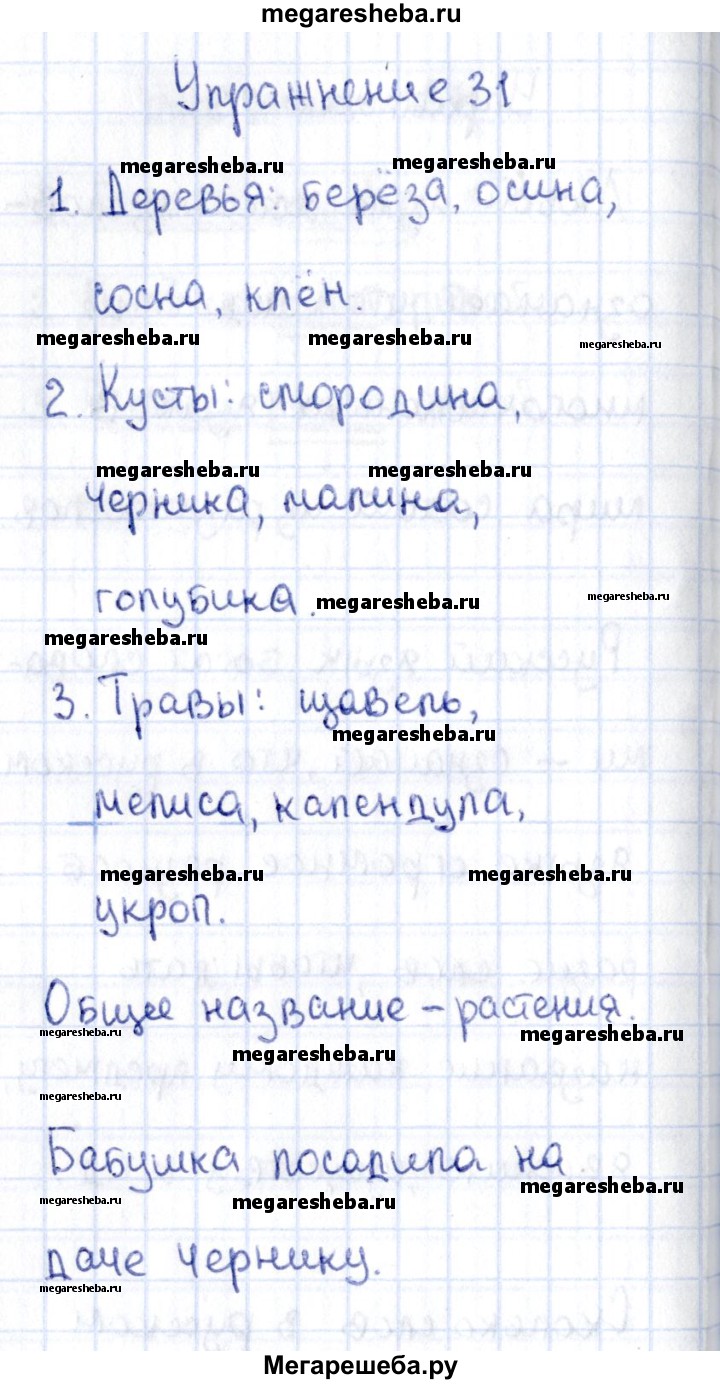 megaresheba.ru
Упражнение 31
megaresheba.ru megaresheba.ru
1. Деревья: берёза, осина,
сосна, клён.
megaresheba.ru megaresheba.ru megaresheba.ru
2. Кусты: смородина,
megaresheba.ru megaresheba.ru
черника, малина,
голубика. megaresheba.ru megaresheba.ru
megaresheba.ru
3. Травы: щавель,
megaresheba.ru
мелиса, календула,
megaresheba.ru megaresheba.ru
укроп.
Общее название – растения.
megaresheba.ru megaresheba.ru megaresheba.ru
megaresheba.ru
Бабушка посадила на
megaresheba.ru megaresheba.ru megaresheba.ru
даче чернику.
megaresheba.ru
Мегарешеба.ру